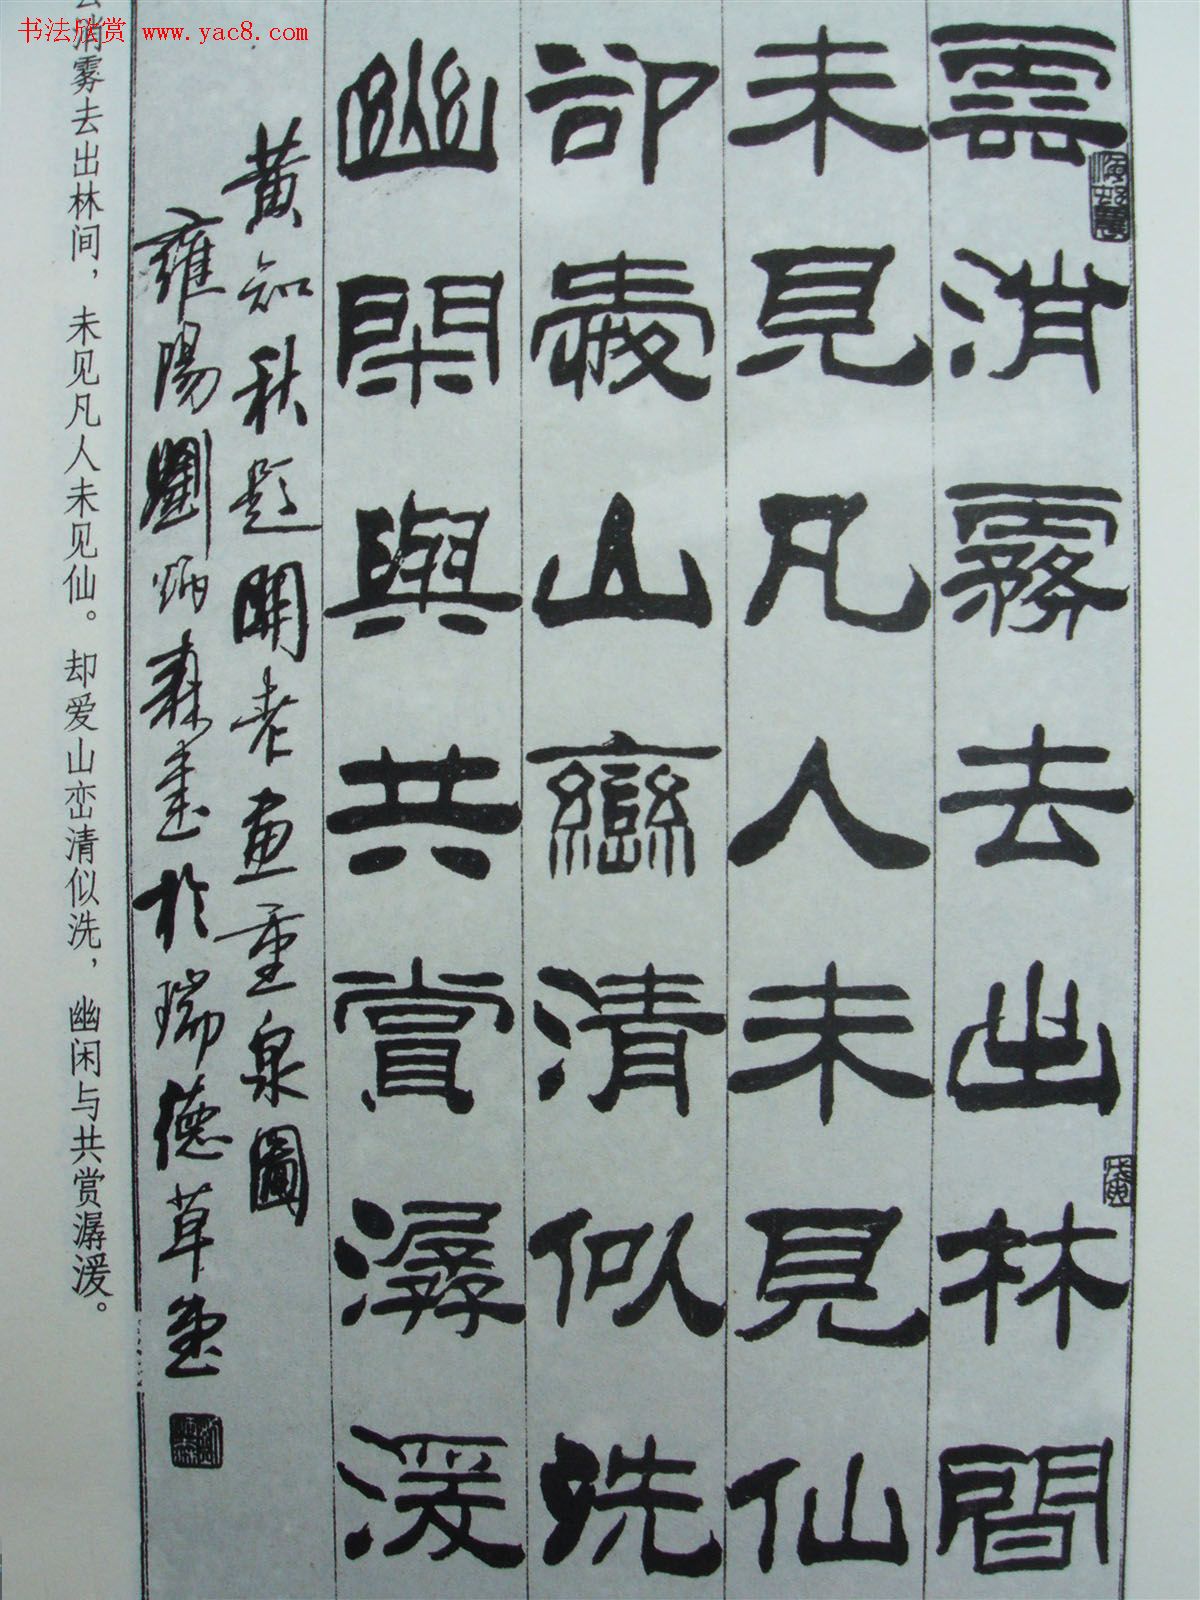 书法欣赏 www.yac8.com
雲消霧去出林間
未見凡人未見仙
卻愛山巒清似洗
幽閑與共賞潺湲
黃知秋題關老畫重泉圖
雍陽劉炳森書於瑞德草堂
消雾去出林间，未见凡人未见仙。却爱山峦清似洗，幽闲与共赏潺湲。
戊寅